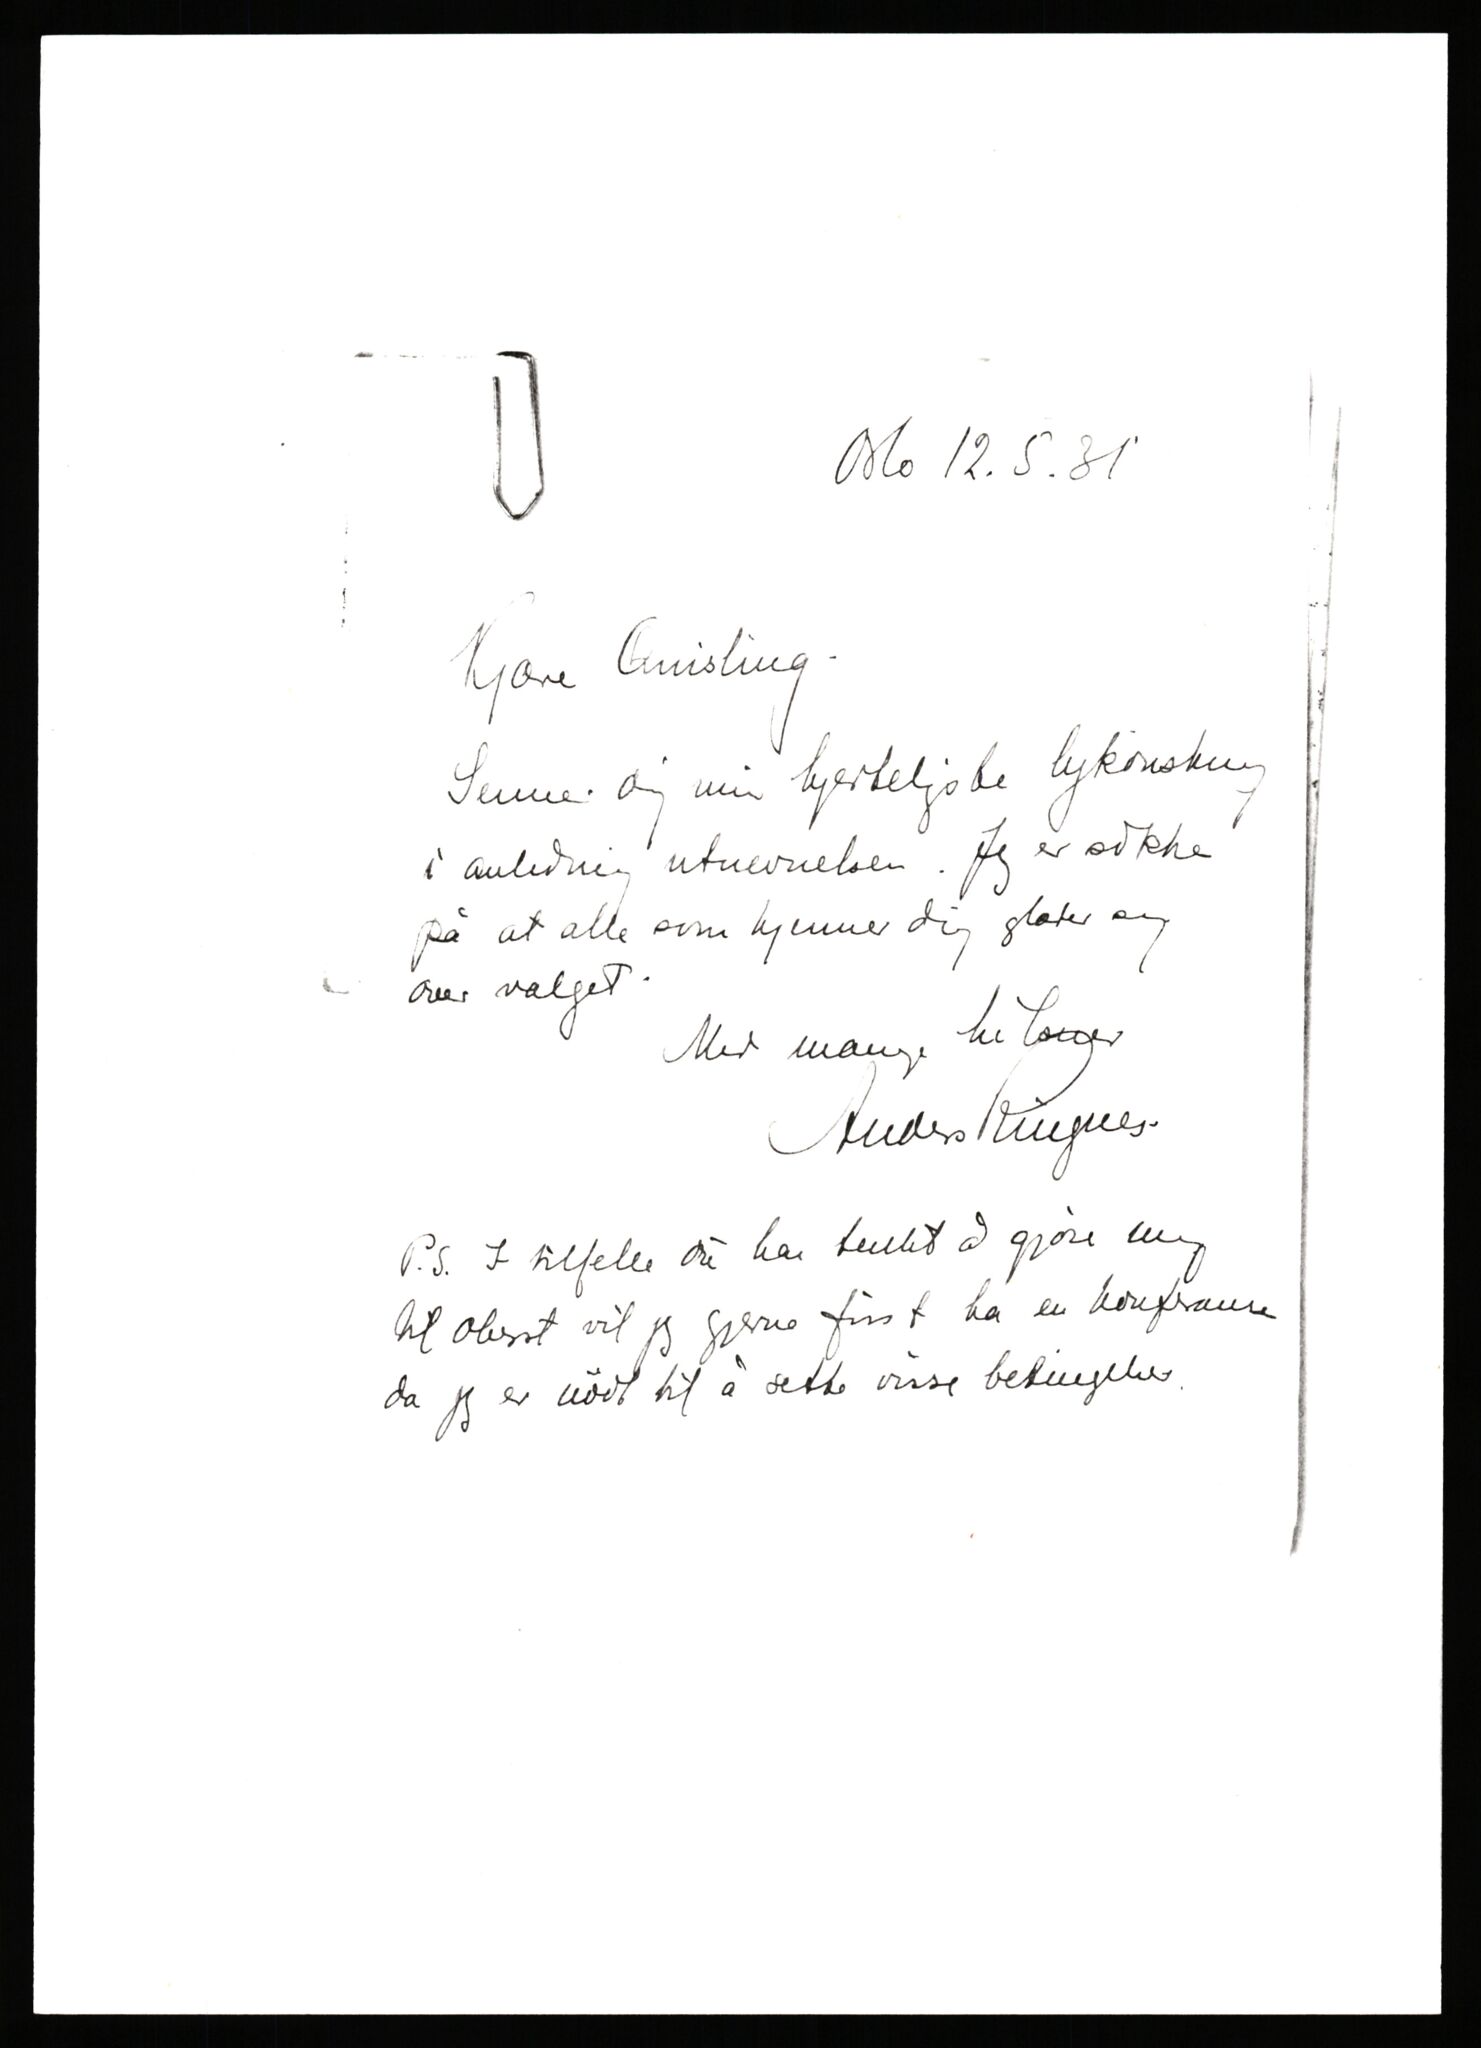 Oslo 12.5.31
Kjære Quisling.
Senner dig min hjerteligste lykönskning
i anledning utnevnelsen. Jeg er sikker
på at alle som kjenner dig gleder sig
over valget.
Med mange hilsener
Anders Ringnes.
P.S. I tilfelle du har tenkt å gjöre mig
til oberst vil jeg gjerne först ha en konferanse
da jeg er nödt til å sette visse betingelser.